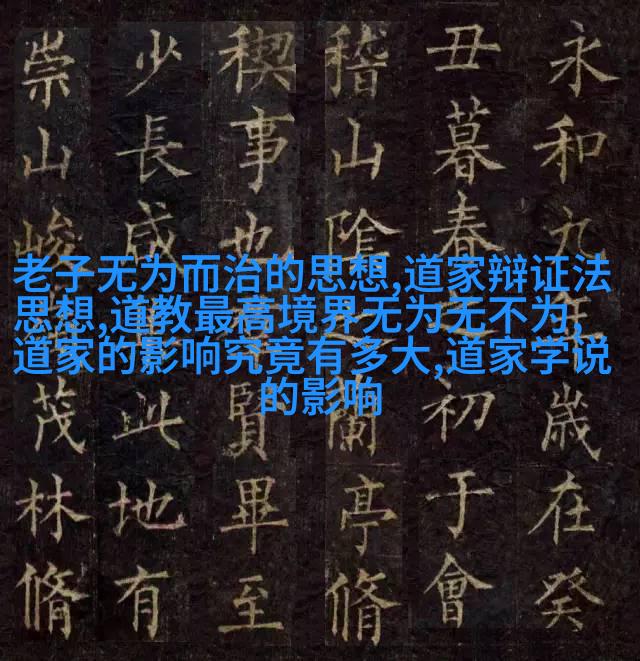 永和九年歲在癸
丑暮春之初于會
稽山陰之蘭亭脩
稧事也賢畢至
少長咸此地有
崇山峻茂林脩
老子无为而治的思想,道家辩证法
思想,道教最高境界无为无不为,
道家的影响究竟有多大,道家学说
的影响